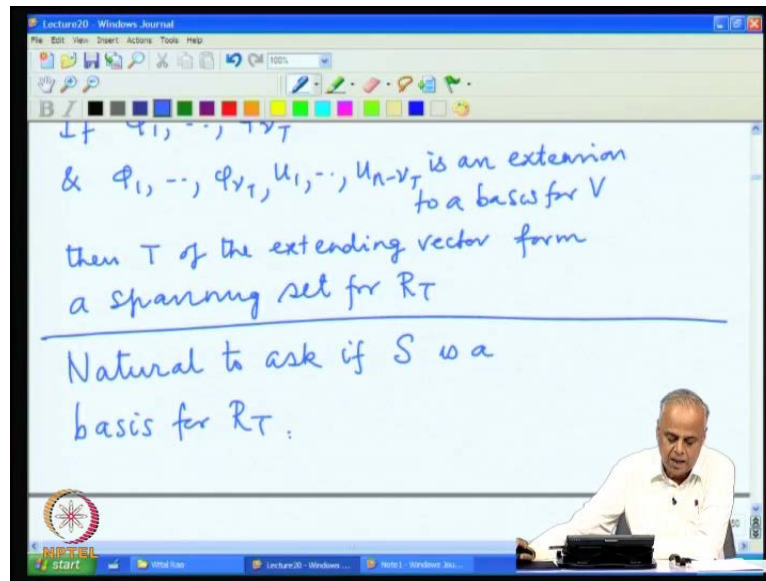 Lecture20 - Windows Journal
File Edit View Insert Actions Tools Help
100%
B I
If φ1, --, φνT
& φ1, --, φνT, u1, --, un-νT is an extension
to a basis for V
then T of the extending vector form
a spanning set for RT
Natural to ask if S is a
basis for RT.
50
NPTEL
start Vittal Rao Lecture20 - Windows ... Note1 - Windows Jou...